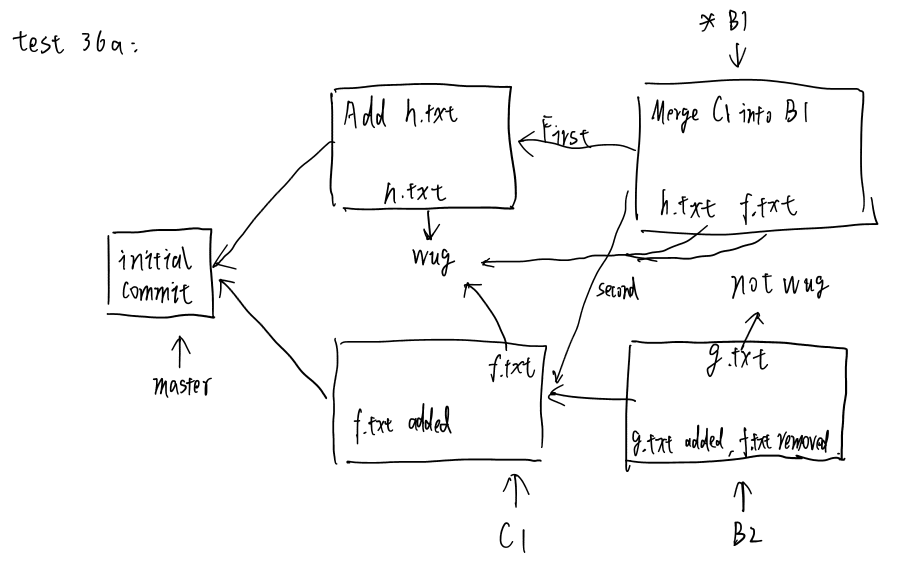 test 36a:
* B1
Add h.txt
h.txt
First
Merge C1 into B1
h.txt f.txt
wug
initial
commit
master
second
not wug
f.txt
f.txt added
g.txt
g.txt added, f.txt removed
C1
B2